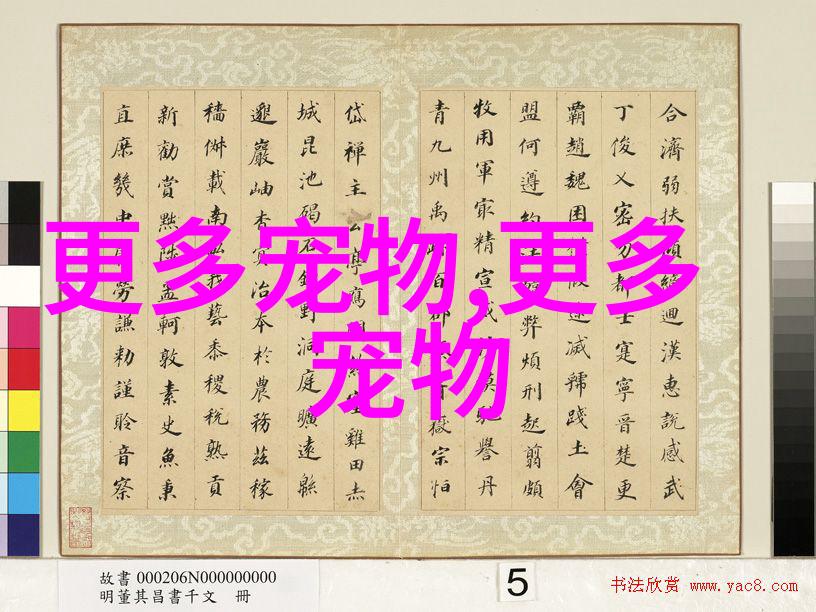 合濟弱扶傾綺迴漢惠說感武
丁俊乂密勿多士寔寧晉楚更
霸趙魏困橫假途滅虢踐土會
盟何遵約法韓弊煩刑起翦頗
牧用軍㝡精宣威沙漠馳譽丹
青九州禹跡百郡秦并嶽宗恒
岱禪主云亭鴈門紫塞雞田赤
城昆池碣石鉅野洞庭曠遠緜
邈巖岫杳冥治本於農務茲稼
穡俶載南畝我藝黍稷稅熟貢
新勸賞黜陟孟軻敦素史魚秉
直庶幾中庸勞謙勑謹聆音察
更多宠物,更多
宠物
故書 000206N000000000
明董其昌書千文 冊
5
书法欣赏 www.yac8.com